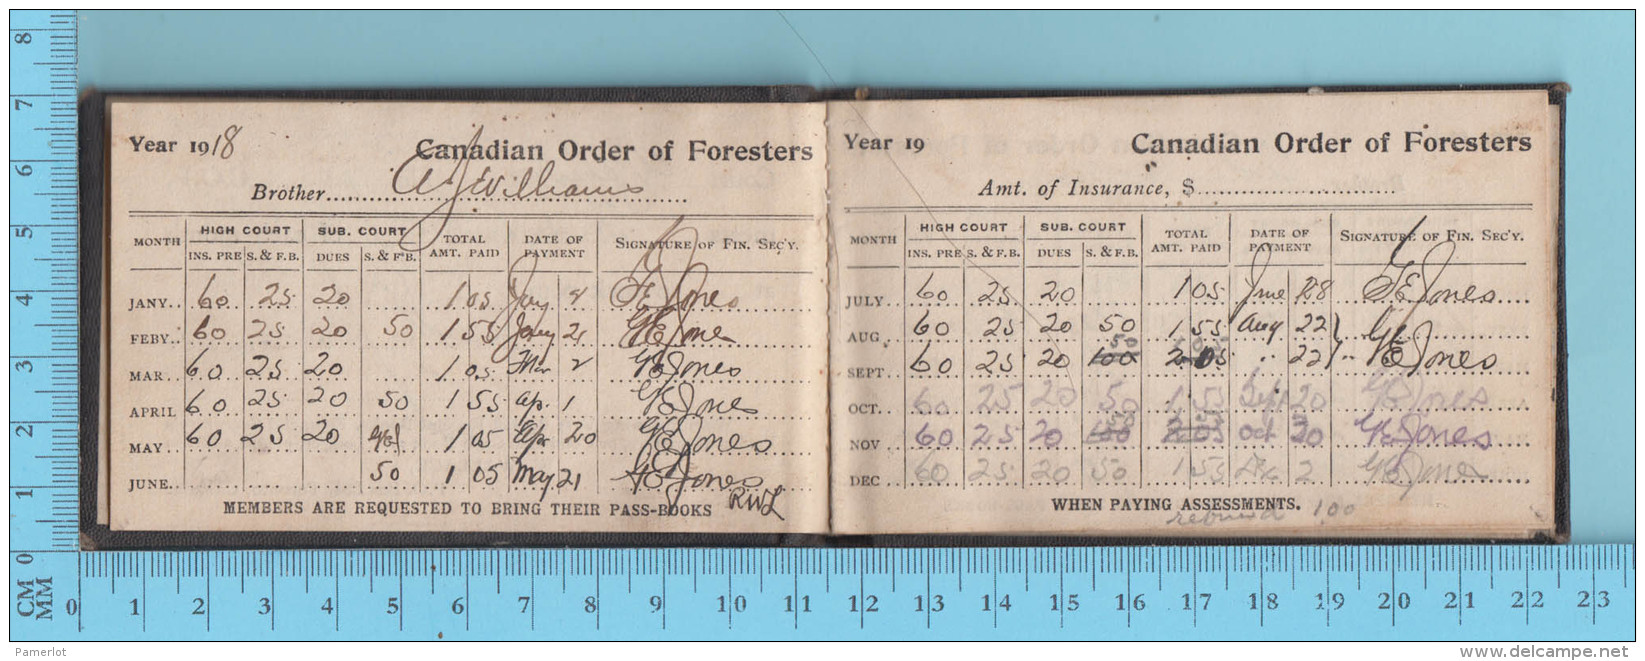 Year 1918 Canadian Order of Foresters
Brother A J Williams
MONTH HIGH COURT SUB. COURT TOTAL AMT. PAID DATE OF PAYMENT SIGNATURE OF FIN. SEC'Y.
INS. PRE S. & F.B. DUES S. & F.B.
JANY 60 25 20 1 05 Jany 4 G E Jones
FEBY 60 25 20 50 1 55 Jany 21 G E Jones
MAR. 60 25 20 1 05 Mar 2 G E Jones
APRIL 60 25 20 50 1 55 Ap. 1 G E Jones
MAY 60 25 20 1 05 Apr 20 G E Jones
JUNE 50 1 05 May 21 G E Jones
MEMBERS ARE REQUESTED TO BRING THEIR PASS-BOOKS RWL
Year 19 Canadian Order of Foresters
Amt. of Insurance, $
MONTH HIGH COURT SUB. COURT TOTAL AMT. PAID DATE OF PAYMENT SIGNATURE OF FIN. SEC'Y.
INS. PRE S. & F.B. DUES S. & F.B.
JULY 60 25 20 1 05 June 28 G E Jones
AUG. 60 25 20 50 1 55 Aug 22 G E Jones
SEPT. 60 25 20 50 100 2 05 " 22 " G E Jones
OCT. 60 25 20 50 1 55 Sept 20 G E Jones
NOV 60 25 20 50 2 05 Oct 30 G E Jones
DEC 60 25 20 50 1 55 Dec 2 G E Jones
WHEN PAYING ASSESSMENTS.
1.00
8 7 6 5 4 3 2 1 0
CM
MM
0 1 2 3 4 5 6 7 8 9 10 11 12 13 14 15 16 17 18 19 20 21 22 23
Pamerlot
www.delcampe.com